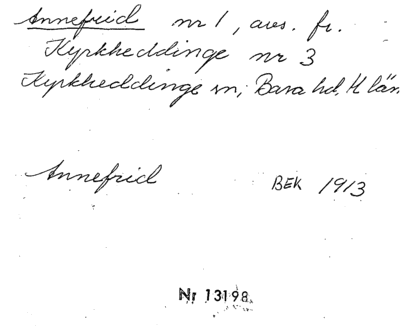 Annefrid nr 1, avs. fr.
Kyrkheddinge nr 3
Kyrkheddinge sn, Bara hd, M län
Annefrid BEK 1913
Nr 13198